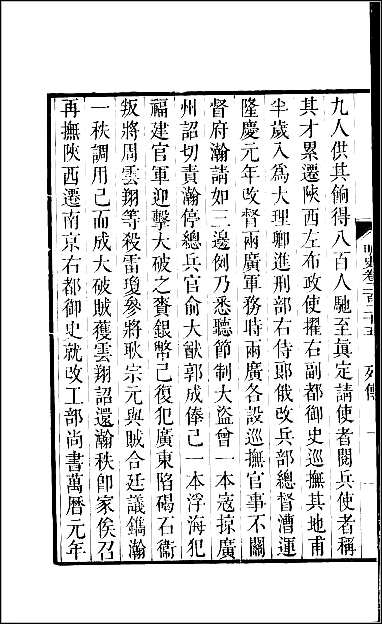 九人供其餉得八百人馳至眞定請使者閱兵使者稱
其才累遷陝西左布政使擢右副都御史巡撫其地甫
半歲入爲大理卿進刑部右侍郎俄改兵部總督漕運
隆慶元年改督兩廣軍務時兩廣各設巡撫官事不關
督府瀚請如三邊例乃悉聽節制大盜曾一本寇掠廣
州詔切責瀚停總兵官俞大猷郭成俸已一本浮海犯
福建官軍迎擊大破之賚銀幣已復犯廣東陷碣石衞
叛將周雲翔等殺雷瓊參將耿宗元與賊合廷議鐫瀚
一秩調用已而成大破賊獲雲翔詔還瀚秩卽家俟召
再撫陝西遷南京右都御史就改工部尚書萬曆元年